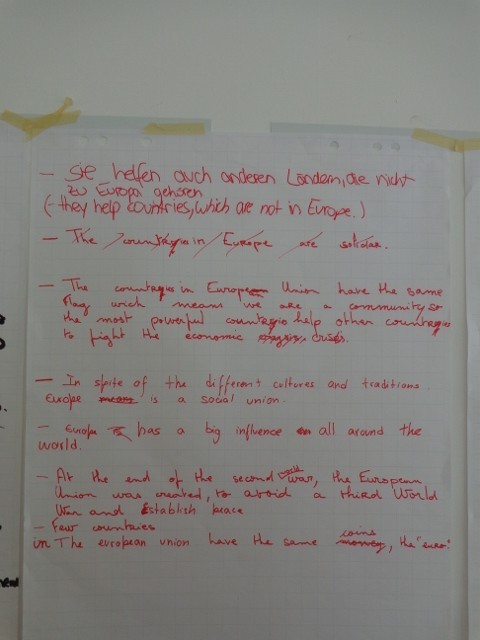 - Sie helfen auch anderen Ländern, die nicht
zu Europa gehören
(- they help countries, which are not in Europe.)
- The in Europe are solidar.
- The in European Union have the same
flag wich means we are a community so
the most powerful help other
to fight the economic crisis.
- In spite of the different cultures and traditions.
Europe means is a social union.
- Europe has a big influence on all around the
world.
- At the end of the second world war, the European
Union was created, to avoid a third World
War and Establish peace
- Few countries
in The european union have the same coins money, the "euro".